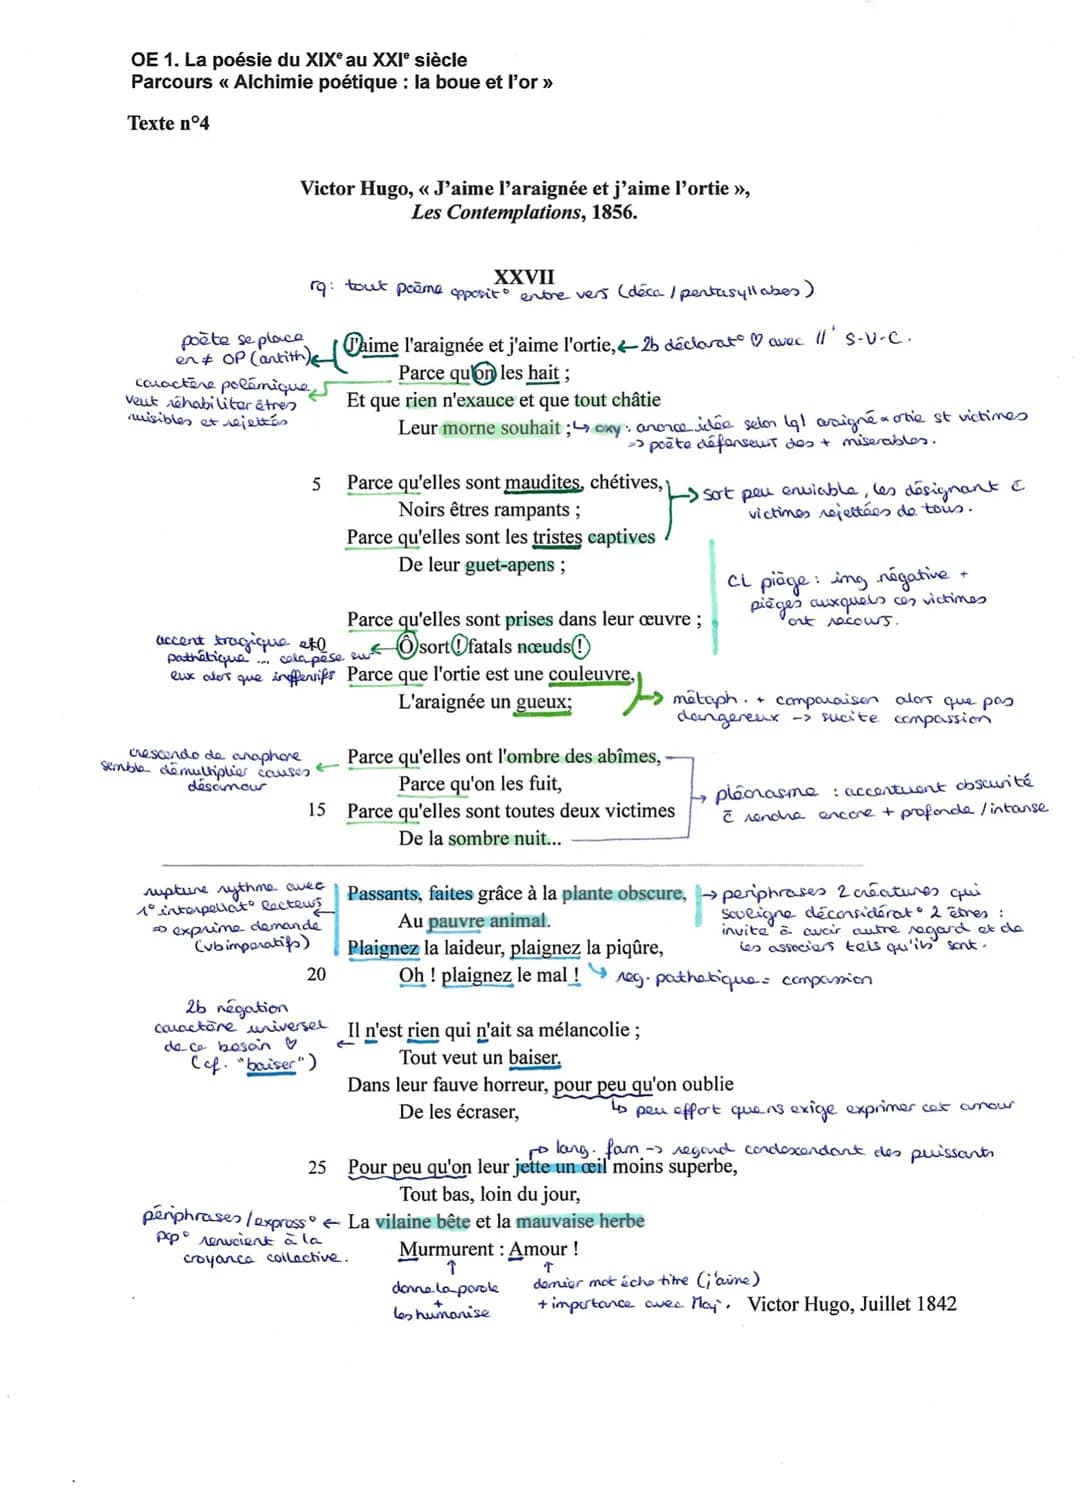 OE 1. La poésie du XIXe au XXIe siècle
Parcours « Alchimie poétique : la boue et l'or »
Texte n°4
Victor Hugo, « J'aime l'araignée et j'aime l'ortie »,
Les Contemplations, 1856.
XXVII
rq: tout poème opposit° entre vers (déca / pentasyllabes)
poète se place
en ≠ OP (antith)
J'aime l'araignée et j'aime l'ortie,
← 2b déclarat° ♡ avec //' S-V-C.
Parce qu'on les hait ;
caractère polémique
veut réhabiliter êtres
nuisibles et rejettés
Et que rien n'exauce et que tout châtie
Leur morne souhait ;
↳ oxy : anonce idée selon lql araigné & ortie st victimes
=> poète défenseur des + misérables.
5 Parce qu'elles sont maudites, chétives,
Noirs êtres rampants ;
→ sort peu enviable, les désignant c̄
victimes rejettées de tous.
Parce qu'elles sont les tristes captives
De leur guet-apens ;
CL piège : img négative +
pièges auxquels ces victimes
ont recours.
Parce qu'elles sont prises dans leur œuvre ;
accent tragique et
pathétique ... cela pèse sur
eux alors que inoffensifs
Ô sort ! fatals nœuds !
Parce que l'ortie est une couleuvre,
L'araignée un gueux;
→ métaph. + comparaison alors que pas
dangereux -> sucite compassion
crescendo de anaphore
semble démultiplier causes
désamour
Parce qu'elles ont l'ombre des abîmes,
Parce qu'on les fuit,
→ pléonasme : accentuent obscurité
c̄ rendre encore + profonde / intense
15 Parce qu'elles sont toutes deux victimes
De la sombre nuit...
rupture rythme avec
1° interpellat° lecteurs
⇒ exprime demande
(vb impératifs)
Passants, faites grâce à la plante obscure,
Au pauvre animal.
→ périphrases 2 créatures qui
souligne déconsidérat° 2 êtres :
invite à avoir autre regard et de
les associers tels qu'ils sont.
Plaignez la laideur, plaignez la piqûre,
20 Oh ! plaignez le mal !
↳ reg. pathétique = compassion
2b négation
caractère universel
de ce besoin ♡
(cf. "baiser")
Il n'est rien qui n'ait sa mélancolie ;
Tout veut un baiser.
Dans leur fauve horreur, pour peu qu'on oublie
De les écraser,
↳ peu effort que ns exige exprimer cet amour
↱ lang. fam -> regard condescendant des puissants
25 Pour peu qu'on leur jette un œil moins superbe,
Tout bas, loin du jour,
périphrases / express°
pop° renvoient à la
croyance collective.
← La vilaine bête et la mauvaise herbe
Murmurent : Amour !
donne la parole
+
les humanise
dernier mot écho titre (j'aime)
+ importance avec Maj.
Victor Hugo, Juillet 1842